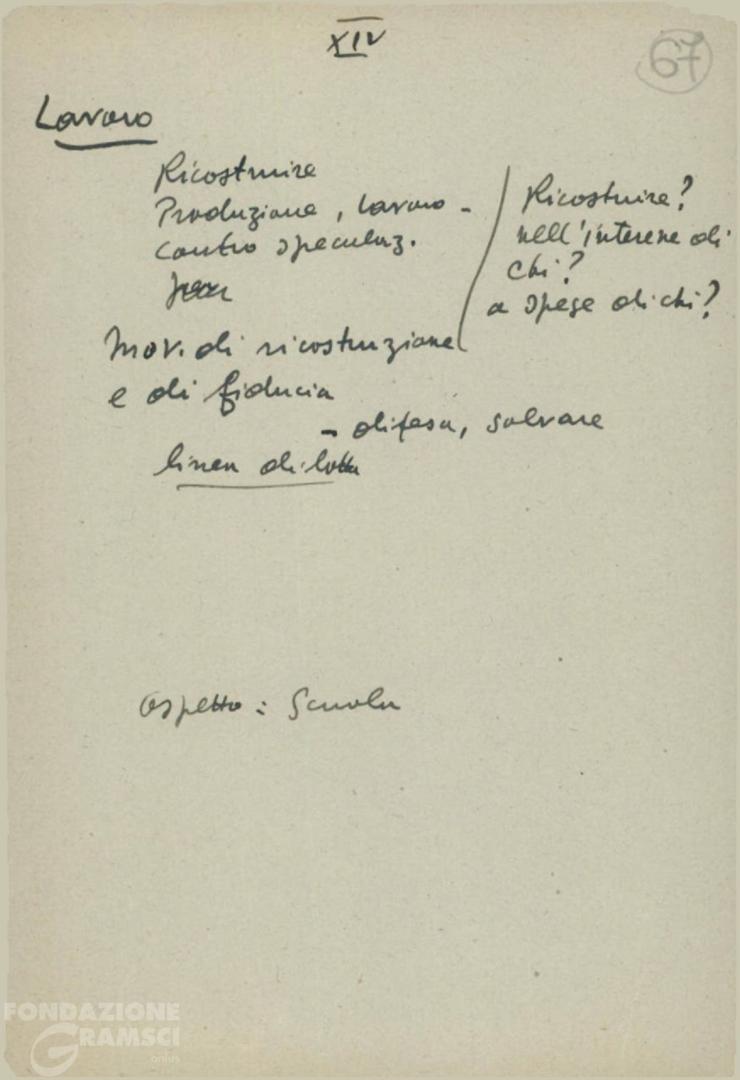 XIV
67
Lavoro
Ricostruire
Produzione, lavoro -
contro speculaz.
Mov. di ricostruzione
e di fiducia
- difesa, salvare
linea di lotta
Ricostruire?
nell'interesse di
chi?
a spese di chi?
aspetto: Scuola
FONDAZIONE
GRAMSCI
onlus